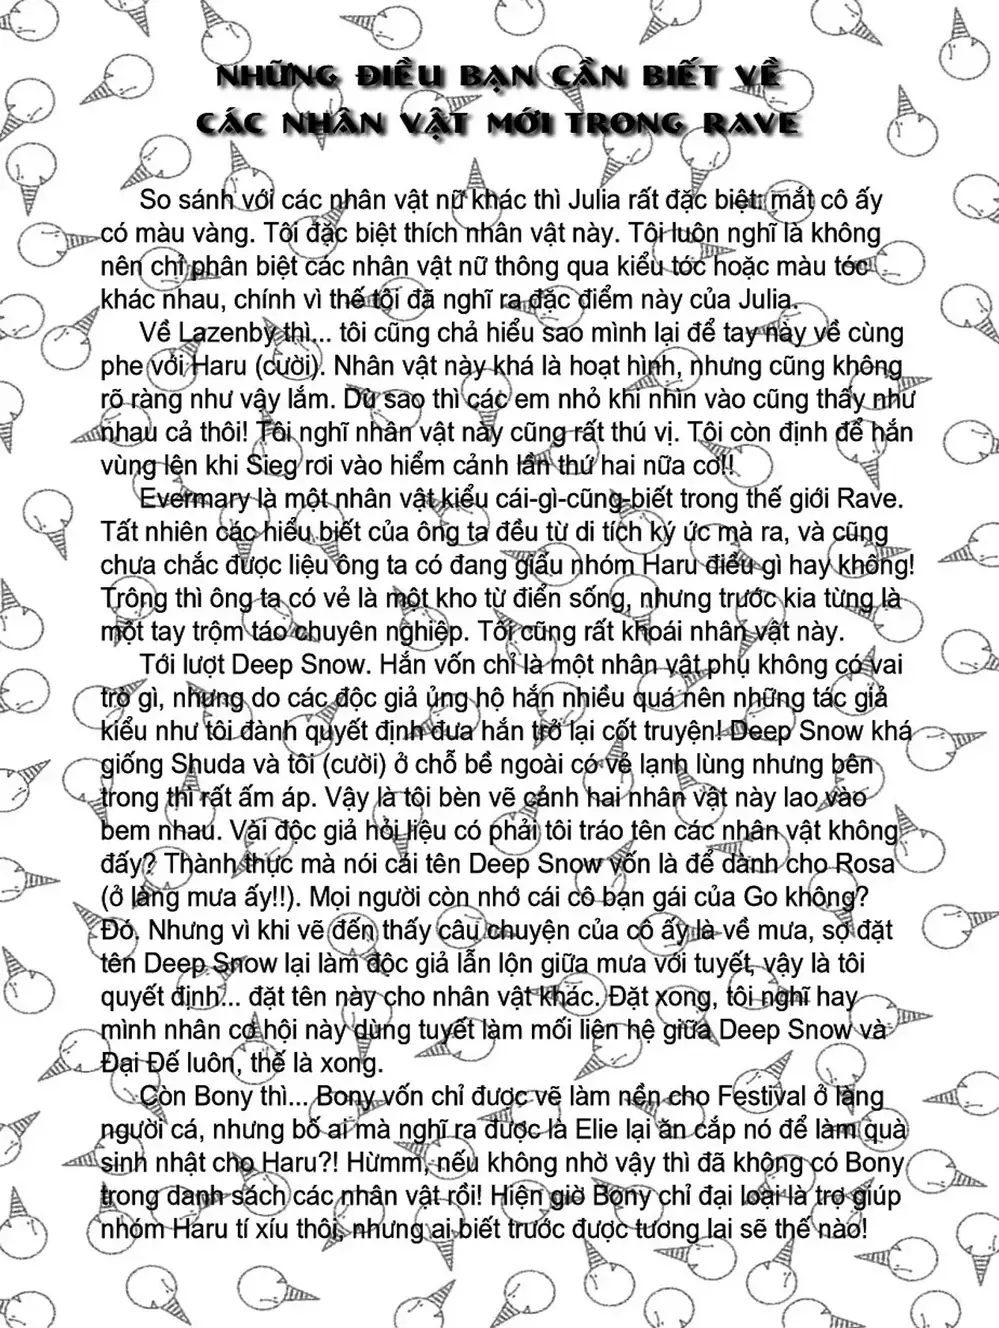 NHỮNG ĐIỀU BẠN CẦN BIẾT VỀ
CÁC NHÂN VẬT MỚI TRONG RAVE
So sánh với các nhân vật nữ khác thì Julia rất đặc biệt: mắt cô ấy
có màu vàng. Tôi đặc biệt thích nhân vật này. Tôi luôn nghĩ là không
nên chỉ phân biệt các nhân vật nữ thông qua kiểu tóc hoặc màu tóc
khác nhau, chính vì thế tôi đã nghĩ ra đặc điểm này của Julia.
Về Lazenby thì... tôi cũng chả hiểu sao mình lại để tay này về cùng
phe với Haru (cười). Nhân vật này khá là hoạt hình, nhưng cũng không
rõ ràng như vậy lắm. Dù sao thì các em nhỏ khi nhìn vào cũng thấy như
nhau cả thôi! Tôi nghĩ nhân vật này cũng rất thú vị. Tôi còn định để hắn
vùng lên khi Sieg rơi vào hiểm cảnh lần thứ hai nữa cơ!!
Evermary là một nhân vật kiểu cái-gì-cũng-biết trong thế giới Rave.
Tất nhiên các hiểu biết của ông ta đều từ di tích ký ức mà ra, và cũng
chưa chắc được liệu ông ta có đang giấu nhóm Haru điều gì hay không!
Trông thì ông ta có vẻ là một kho từ điển sống, nhưng trước kia từng là
một tay trộm táo chuyên nghiệp. Tôi cũng rất khoái nhân vật này.
Tới lượt Deep Snow. Hắn vốn chỉ là một nhân vật phụ không có vai
trò gì, nhưng do các độc giả ủng hộ hắn nhiều quá nên những tác giả
kiểu như tôi đành quyết định đưa hắn trở lại cốt truyện! Deep Snow khá
giống Shuda và tôi (cười) ở chỗ bề ngoài có vẻ lạnh lùng nhưng bên
trong thì rất ấm áp. Vậy là tôi bèn vẽ cảnh hai nhân vật này lao vào
bem nhau. Vài độc giả hỏi liệu có phải tôi tráo tên các nhân vật không
đấy? Thành thực mà nói cái tên Deep Snow vốn là để dành cho Rosa
(ở làng mưa ấy!!). Mọi người còn nhớ cái cô bạn gái của Go không?
Đó. Nhưng vì khi vẽ đến thấy câu chuyện của cô ấy là về mưa, sợ đặt
tên Deep Snow lại làm độc giả lẫn lộn giữa mưa với tuyết, vậy là tôi
quyết định... đặt tên này cho nhân vật khác. Đặt xong, tôi nghĩ hay
mình nhân cơ hội này dùng tuyết làm mối liên hệ giữa Deep Snow và
Đại Đế luôn, thế là xong.
Còn Bony thì... Bony vốn chỉ được vẽ làm nền cho Festival ở làng
người cá, nhưng bố ai mà nghĩ ra được là Elie lại ăn cắp nó để làm quà
sinh nhật cho Haru?! Hừmm, nếu không nhờ vậy thì đã không có Bony
trong danh sách các nhân vật rồi! Hiện giờ Bony chỉ đại loại là trợ giúp
nhóm Haru tí xíu thôi, nhưng ai biết trước được tương lai sẽ thế nào!